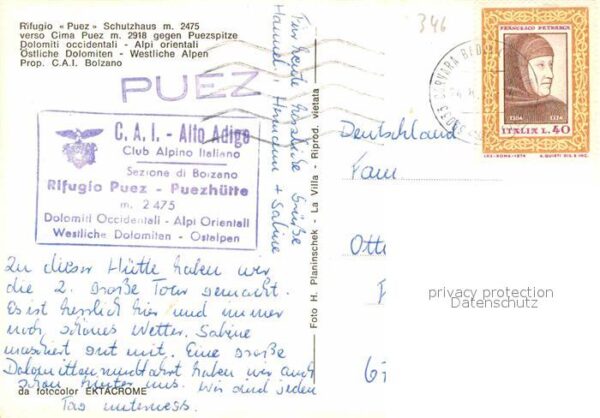 Rifugio «Puez» Schutzhaus m. 2475
verso Cima Puez m. 2918 gegen Puezspitze
Dolomiti occidentali - Alpi orientali
Östliche Dolomiten - Westliche Alpen
Prop. C.A.I. Bolzano
PUEZ
C.A.I. - Alto Adige
Club Alpino Italiano
Sezione di Bolzano
Rifugio Puez - Puezhütte
m. 2475
Dolomiti Occidentali - Alpi Orientali
Westliche Dolomiten - Ostalpen
Zu dieser Hütte haben wir
die 2. große Tour gemacht.
Es ist herrlich hier und immer
noch schönes Wetter. Sabine
marschiert gut mit. Eine große
Dolomitenrundfahrt haben wir auch
schon hinter uns. Wir sind jeden
Tag unterwegs.
da fotocolor EKTACROME
Für heute herzliche Grüße
Hannel, Hermann + Sabine
Foto H. Planinschek - La Villa - Riprod. vietata
346
FRANCESCO PETRARCA
1304
1374
ITALIA L. 40
I.P.S.-ROMA-1974
Deutschland
Fam
Otte
privacy protection
Datenschutz